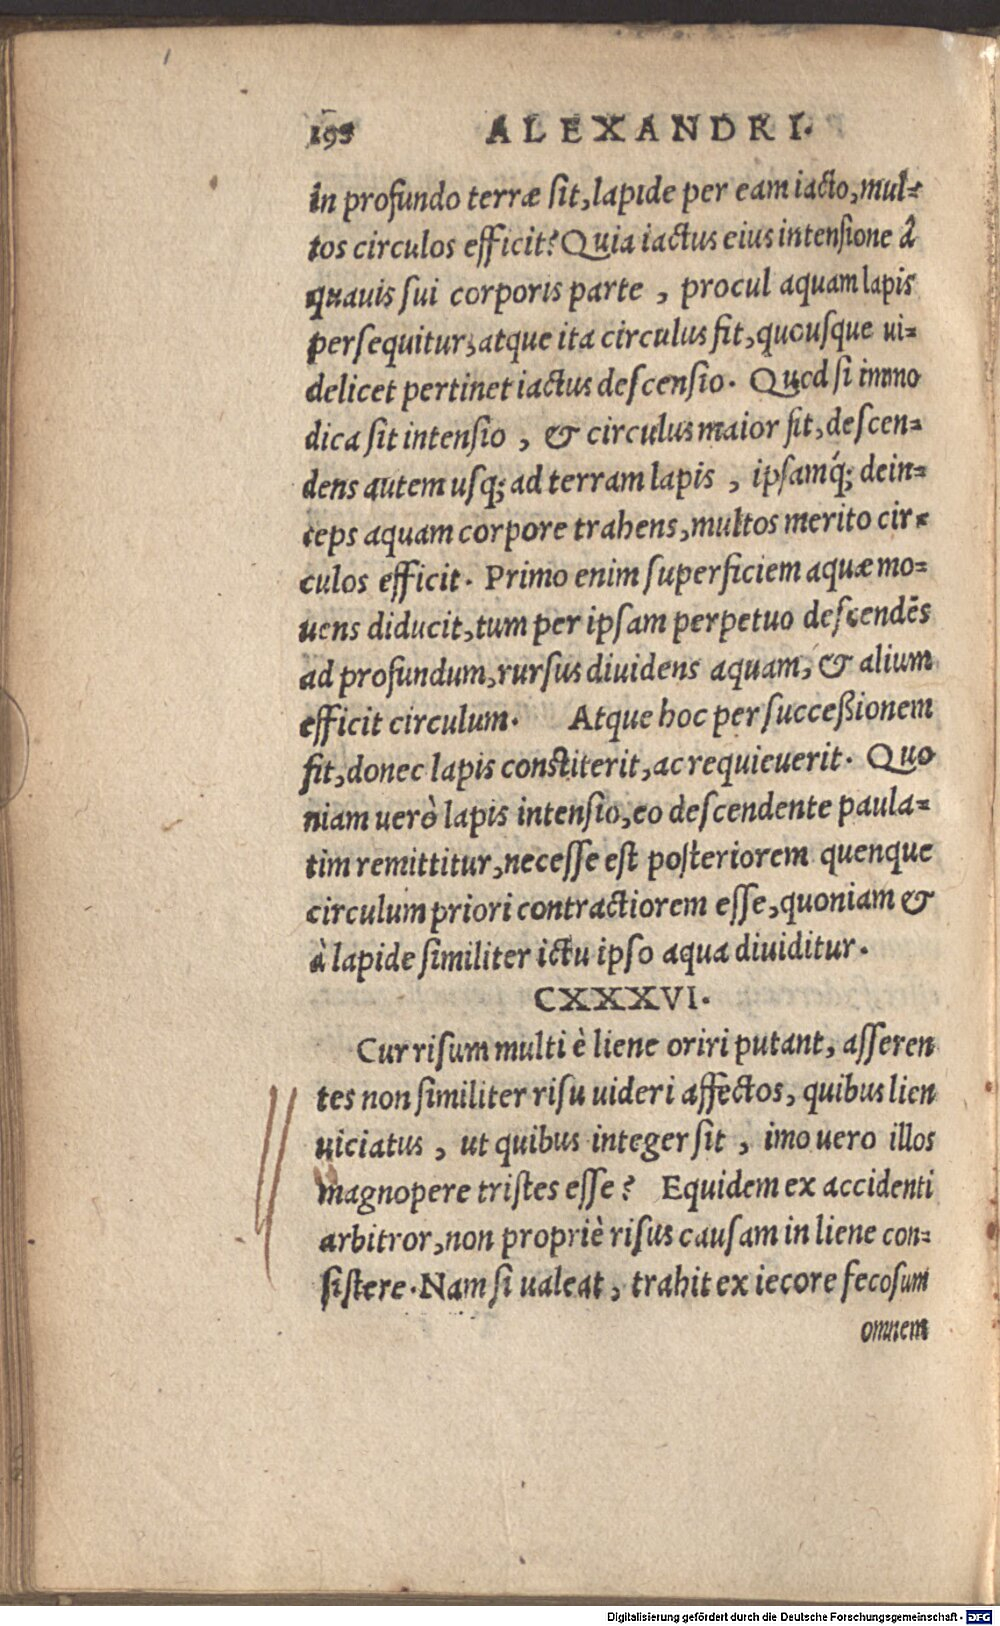 195 ALEXANDRI.
in profundo terræ sit, lapide per eam iacto, mul-
tos circulos efficit? Quia iactus eius intensione à
quauis sui corporis parte, procul aquam lapis
persequitur, atque ita circulus fit, quousque ui-
delicet pertinet iactus descensio. Quod si immo
dica sit intensio, & circulus maior fit, descen-
dens autem usq; ad terram lapis, ipsamq́; dein-
ceps aquam corpore trahens, multos merito cir-
culos efficit. Primo enim superficiem aquæ mo-
uens diducit, tum per ipsam perpetuo descendẽs
ad profundum, rursus diuidens aquam, & alium
efficit circulum. Atque hoc per succeßionem
fit, donec lapis constiterit, ac requieuerit. Quo
niam uerò lapis intensio, eo descendente paula-
tim remittitur, necesse est posteriorem quenque
circulum priori contractiorem esse, quoniam &
à lapide similiter ictu ipso aqua diuiditur.
CXXXVI.
Cur risum multi è liene oriri putant, asseren
tes non similiter risu uideri affectos, quibus lien
uiciatus, ut quibus integer sit, imo uero illos
magnopere tristes esse? Equidem ex accidenti
arbitror, non propriè risus causam in liene con-
sistere. Nam si ualeat, trahit ex iecore fecosum
omnem
Digitalisierung gefördert durch die Deutsche Forschungsgemeinschaft - DFG